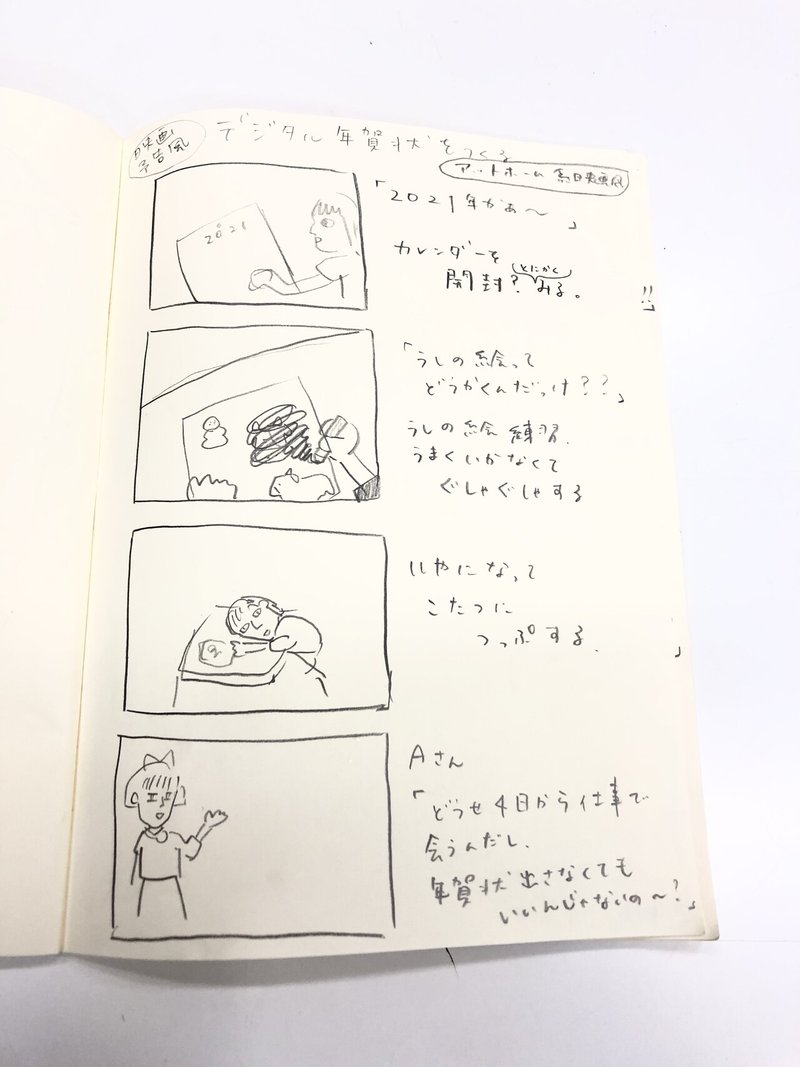 映画
予告風
デジタル年賀状をつくる
アットホーム系日映画風
2021
「2021年かぁ〜
」
カレンダーを
(とにかく)
開封?みる。
!!」
「うしの絵って
どうかくんだっけ??」
うしの絵練習、
うまくいかなくて
ぐしゃぐしゃする
いやになって
こたつに
つっぷする、
」
Aさん
「どうせ4日から仕事で
会うんだし、
年賀状出さなくても
いいんじゃないの〜?」